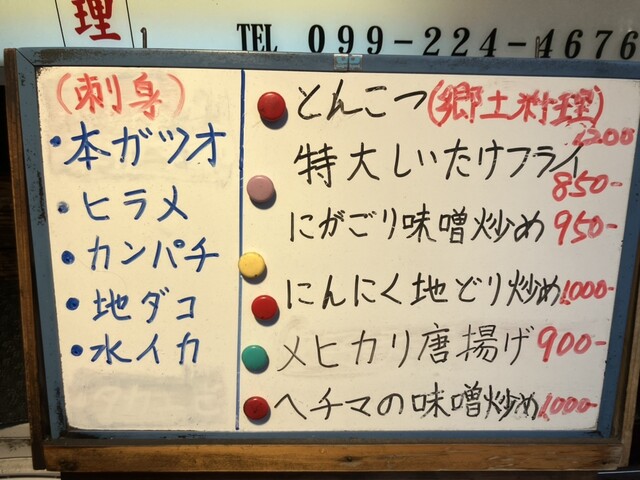 理
TEL 099-224-4676
(刺身)
・本ガツオ
・ヒラメ
・カンパチ
・地ダコ
・水イカ
とんこつ(郷土料理)
1200
特大しいたけフライ
850-
にがごり味噌炒め 950-
にんにく地どり炒め 1000-
メヒカリ唐揚げ 900-
ヘチマの味噌炒め 1000-